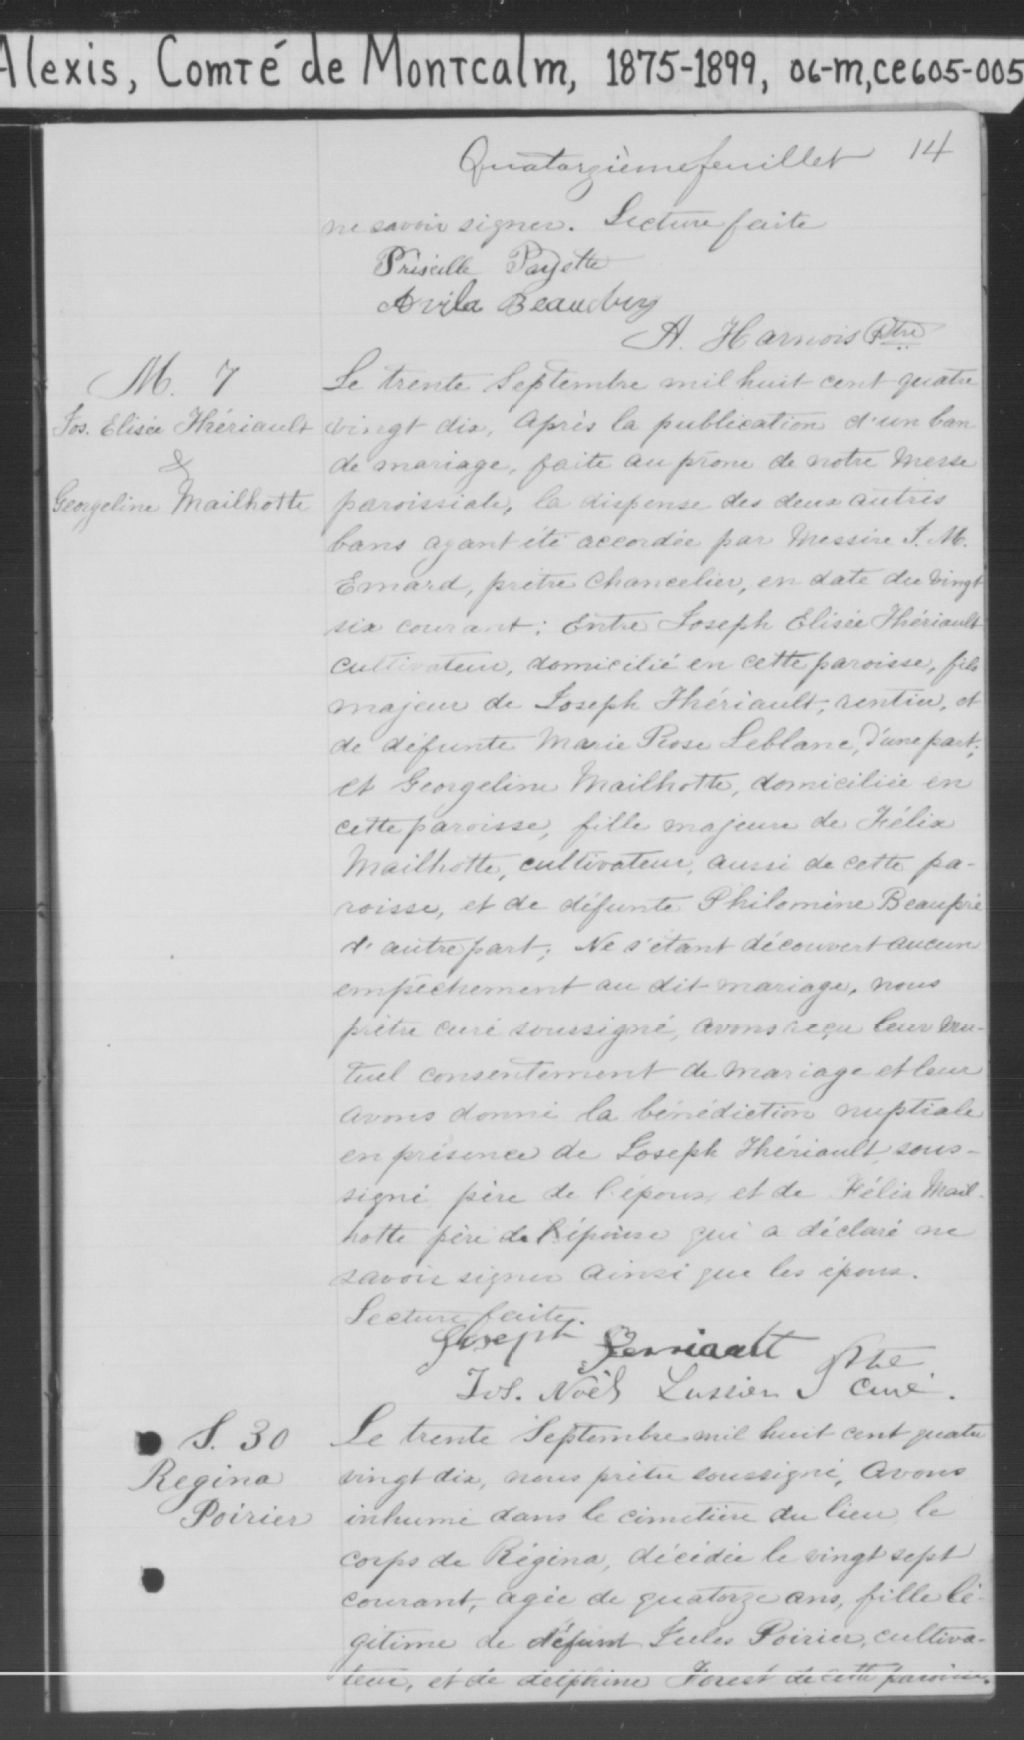 Alexis, Comté de Montcalm, 1875-1899, 06-M,CE605-005
Quatorzième feuillet 14
ne savoir signer. Lecture faite
Priscille Payette
Avila Beaudry
A. Harnois Ptre
M. 7
Jos. Elisée Thériault
&
Georgeline Mailhotte
Le trente Septembre mil huit cent quatre
vingt dix, Après la publication d'un ban
de mariage, faite au prone de notre Messe
paroissiale, la dispense des deux autres
bans ayant été accordée par Messire J. M.
Emard, prêtre Chancelier, en date du vingt
six courant; Entre Joseph Elisée Thériault
cultivateur, domicilié en cette paroisse, fils
majeur de Joseph Thériault, rentier, et
de défunte Marie Rose Leblanc, d'une part;
et Georgeline Mailhotte, domiciliée en
cette paroisse, fille majeure de Félix
Mailhotte, cultivateur, aussi de cette pa-
roisse, et de défunte Philomène Beaupré
d'autre part; Ne s'étant découvert aucun
empêchement au dit mariage, nous
prêtre curé soussigné, avons reçu leur mu-
tuel consentement de mariage et leur
avons donné la bénédiction nuptiale
en présence de Joseph Thériault sous-
signé père de l'époux, et de Félix Mail-
hotte père de l'épouse qui a déclaré ne
savoir signer ainsi que les époux.
Lecture faite.
Joseph Terriault
Jos. Noël Lussier Ptre curé.
S. 30
Regina
Poirier
Le trente Septembre mil huit cent quatre
vingt dix, nous prêtre soussigné, avons
inhumé dans le cimetière du lieu, le
corps de Régina, décédée le vingt sept
courant, agée de quatorze ans, fille lé-
gitime de défunt Jules Poirier, cultiva-
teur, et de delphine Forest de cette paroisse.